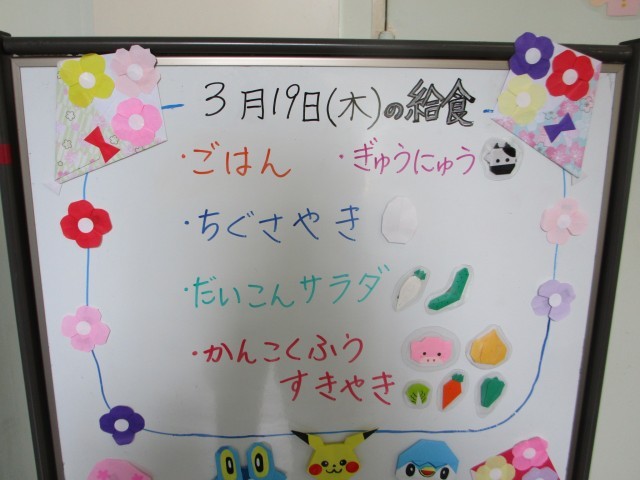 3月19日(木)の給食
・ごはん ・ぎゅうにゅう
・ちぐさやき
・だいこんサラダ
・かんこくふう
すきやき